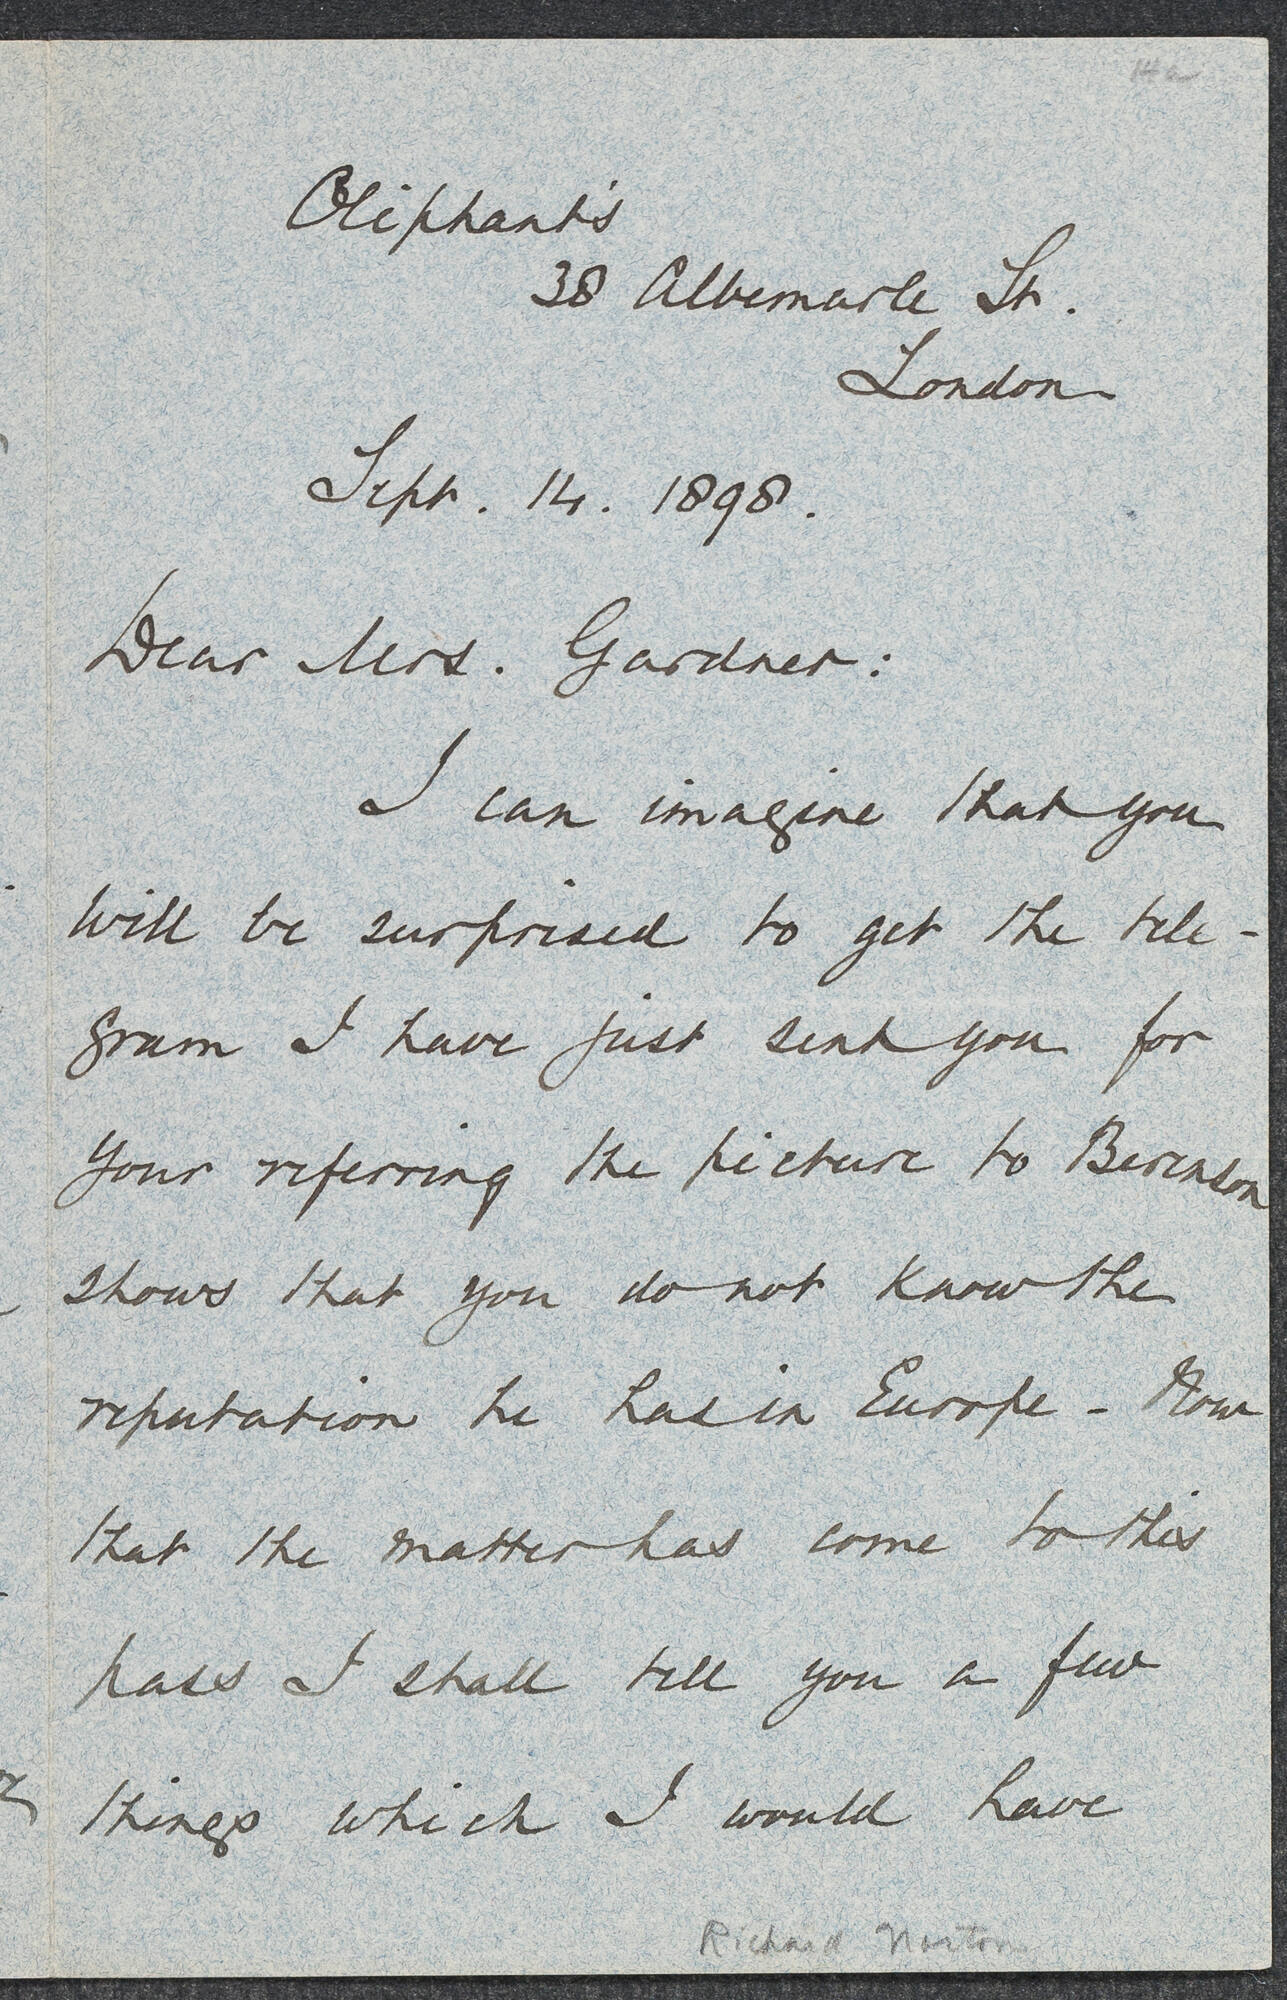 Oliphant's
38 Albemarle St.
London
Sept. 14. 1898.
Dear Mrs. Gardner:
I can imagine that you
will be surprised to get the tele-
gram I have just sent you for
your referring the picture to Berenson
shows that you do not know the
reputation he has in Europe - Now
that the matter has come to this
pass I shall tell you a few
things which I would have
Richard Norton